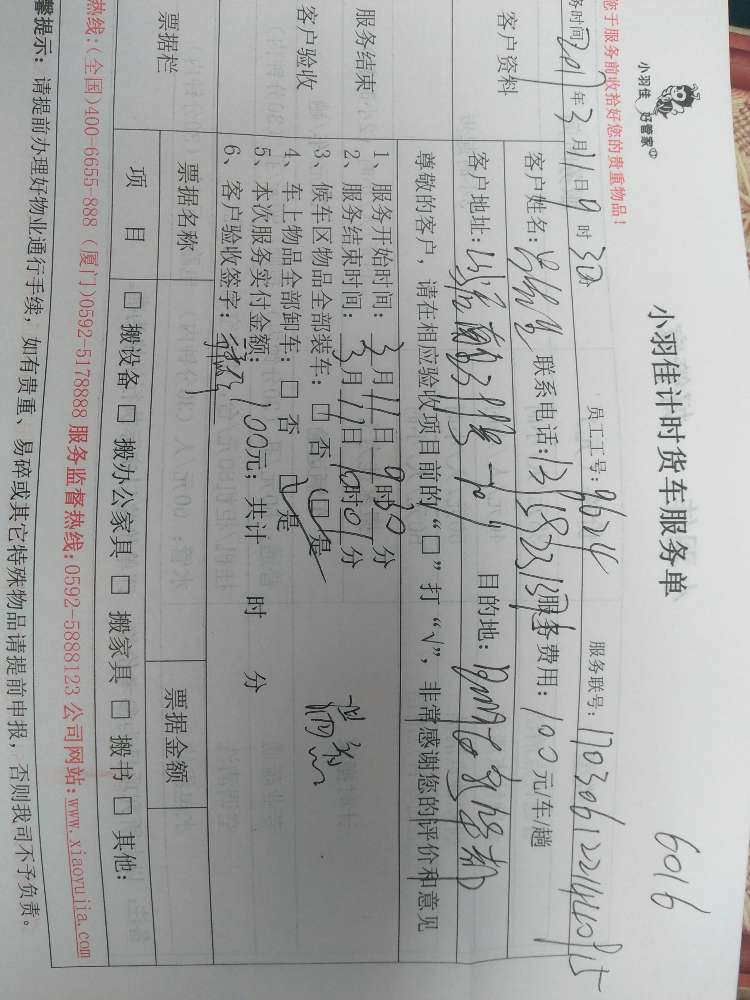 小羽佳 好管家
小羽佳计时货车服务单
6016
您于服务前收拾好您的贵重物品！
务时间 2017年3月11日9时30 员工工号：9624 服务联号：
客户资料
客户姓名： 联系电话： 服务费用：100元/车/趟
客户地址： 目的地：
尊敬的客户，请在相应验收项目前的“□”打“√”，非常感谢您的评价和意见
服务结束
客户验收
1、服务开始时间：3月11日9时30分
2、服务结束时间：3月11日10时01分
3、候车区物品全部装车：□ 否 □ 是
4、车上物品全部卸车：□ 否 □ 是
5、本次服务实付金额：100元；共计 时 分
6、客户验收签字：
票据栏
票据名称 票据金额
项 目 □ 搬设备 □ 搬办公家具 □ 搬家具 □ 搬书 □ 其他：
热线：(全国)400-6655-888 (厦门)0592-5178888 服务监督热线：0592-5888123 公司网站：www.xiaoyujia.com
馨提示：请提前办理好物业通行手续，如有贵重、易碎或其它特殊物品请提前申报，否则我司不予负责。